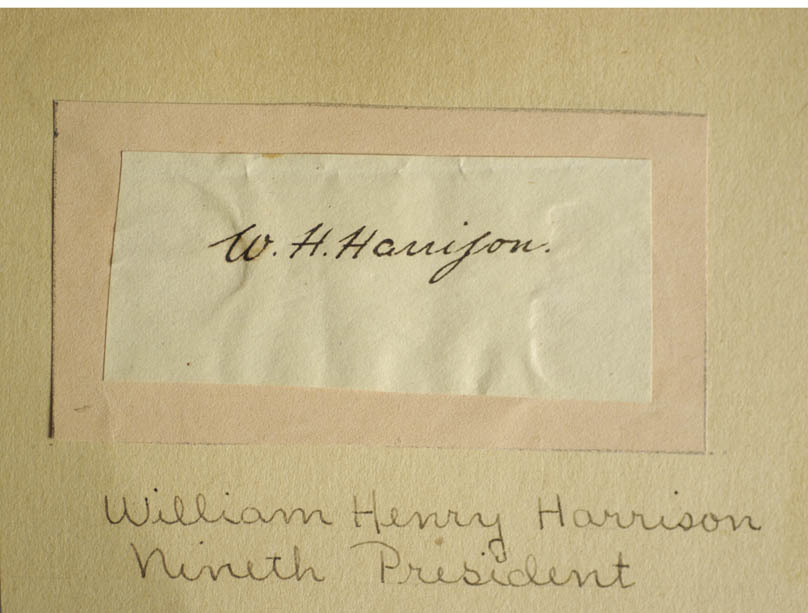 W. H. Harrison.
William Henry Harrison
Nineth President